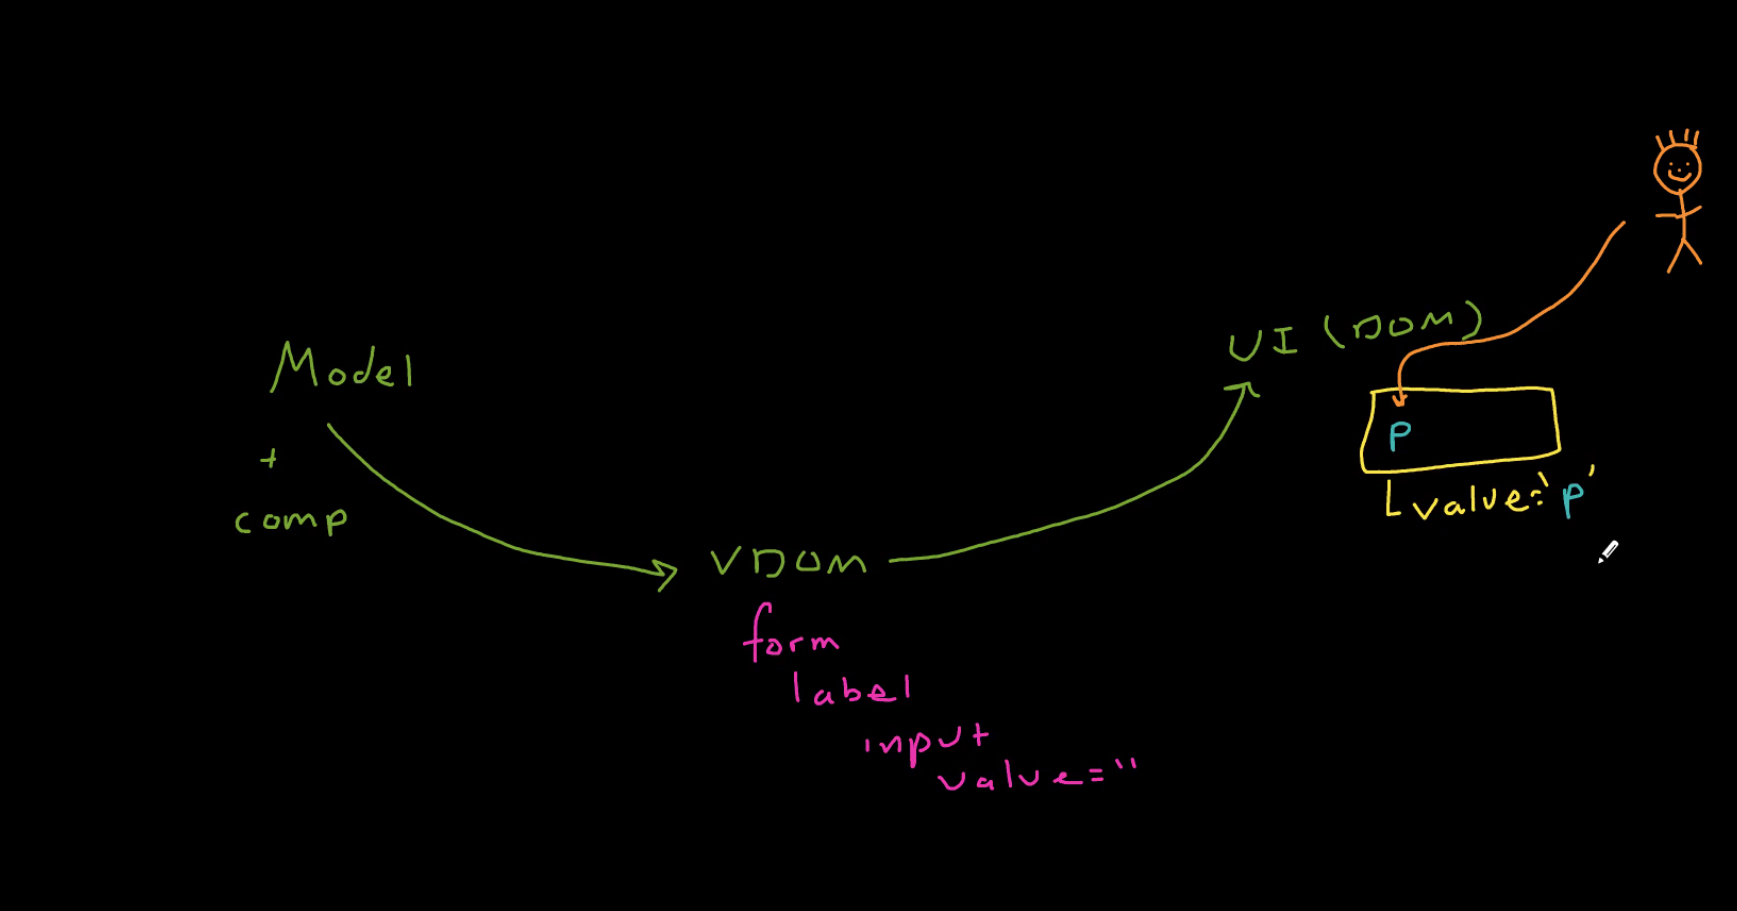 Model
+
comp
VDOM
form
label
input
value=''
UI (DOM)
P
value='p'